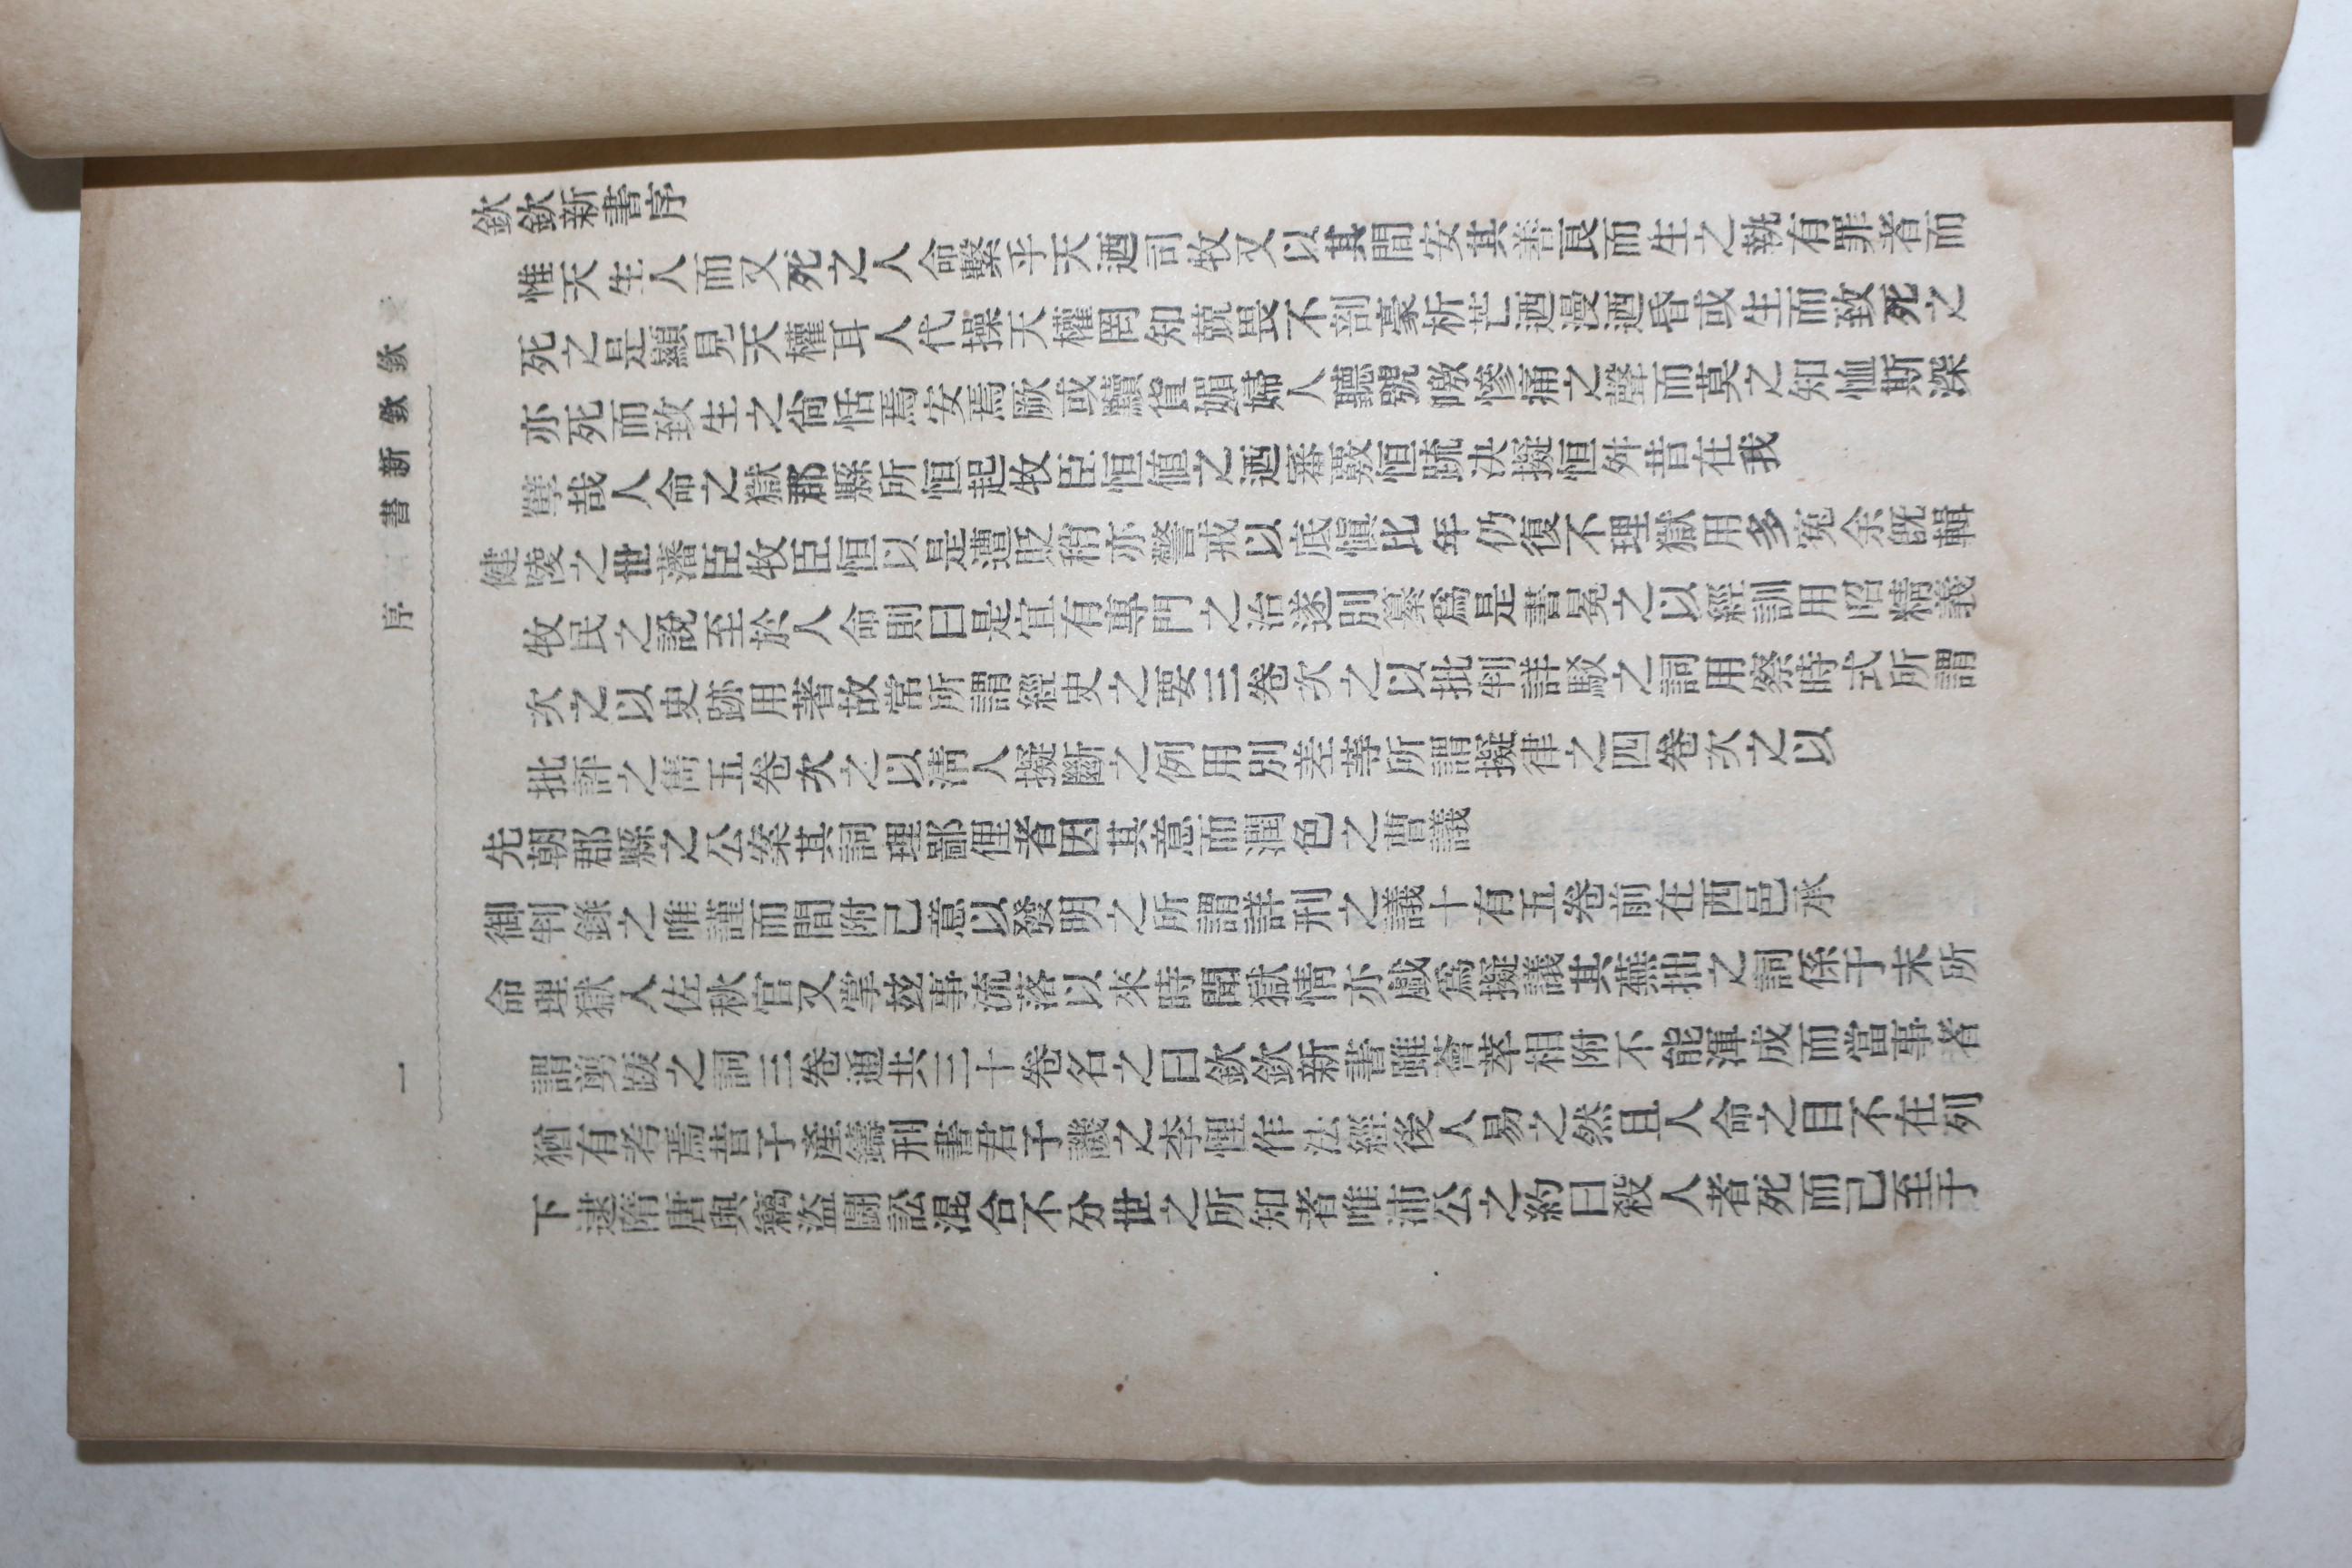 欽欽新書 序 一
欽欽新書序
惟天生人而又死之人命繫乎天迺司牧又以其間安其善良而生之執有罪者而
死之是顯見天權耳人代操天權罔知兢畏不剖豪析芒迺漫迺昏或生而致死之
亦死而致生之尙恬焉安焉厥或黷貨媚婦人聽號噭慘痛之聲而莫之知恤斯深
孼哉人命之獄郡縣所恒起牧臣恒値之迺審覈恒疏决擬恒舛昔在我
健陵之世藩臣牧臣恒以是遭貶稍亦警戒以底愼比年仍復不理獄用多寃余旣輯
牧民之說至於人命則曰是宜有專門之治遂別纂爲是書冕之以經訓用昭精義
次之以史跡用著故常所謂經史之要三卷次之以批判詳駁之詞用察時式所謂
批評之雋五卷次之以淸人擬斷之例用別差等所謂擬律之四卷次之以
先朝郡縣之公案其詞理鄙俚者因其意而潤色之曹議
御判錄之唯謹而間附己意以發明之所謂詳刑之議十有五卷前在西邑承
命理獄入佐秋官又掌玆事流落以來時聞獄情亦戱爲擬議其蕪拙之詞係于末所
謂剪跋之詞三卷通共三十卷名之曰欽欽新書雖薈萃相附不能渾成而當事者
猶有考焉昔子產鑄刑書君子譏之李悝作法經後人易之然且人命之目不在列
下逮隋唐與竊盜鬪訟混合不分世之所知者唯沛公之約曰殺人者死而己至于